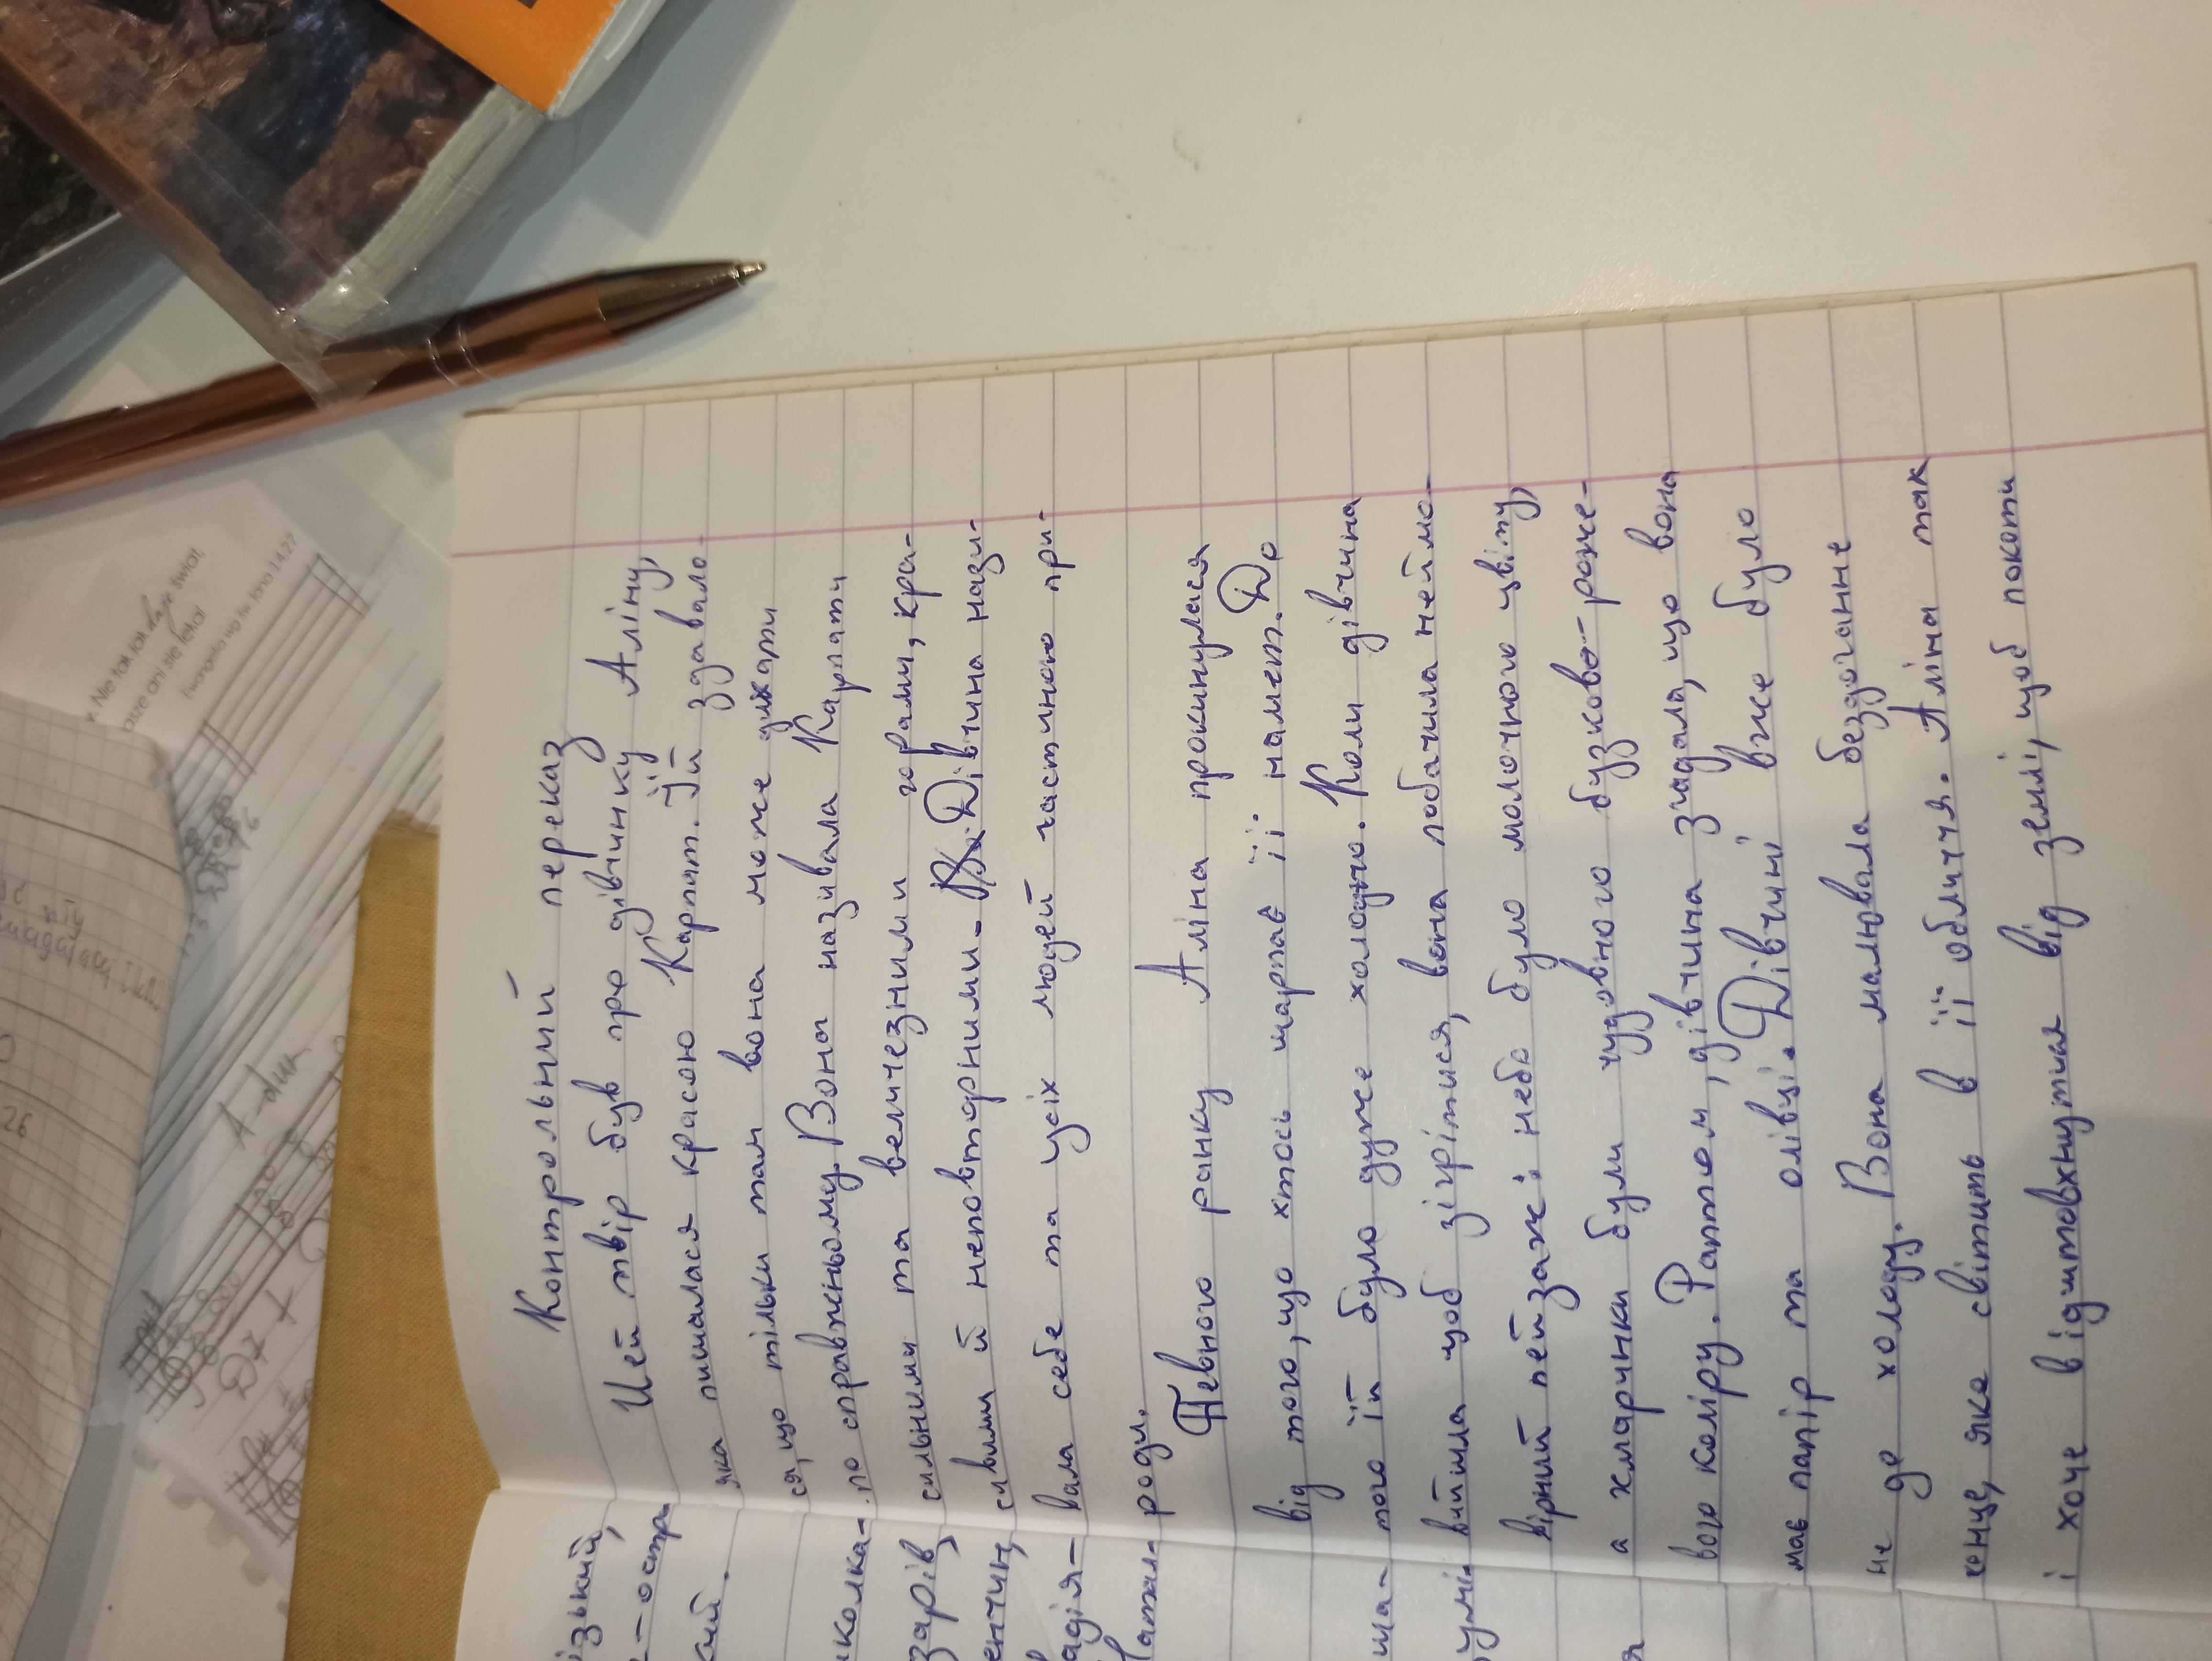 Контрольний переказ
Цей твір був про дівчинку Аліну,
яка пишалася красою Карпат. Їй здавало-
ся, що тільки там вона може дихати
по справжньому. Вона називала Карпати
сильними та величезними горами, кра-
сивими й неповторними. Дівчина нази-
вала себе та усіх людей частиною при-
роди.
Певного ранку Аліна прокинулася
від того, що хтось шарпає її намет. До
того їй було дуже холодно. Коли дівчина
вийшла щоб зігрітися, вона побачила неймо-
вірний пейзаж: небо було молочного цвіту,
а хмаринки були чудовного бузково-роже-
вого коліру. Раптом, дівчина згадала, що вона
має папір та олівці. Дівчині вже було
не до холоду. Вона малювала бездоганне
сонце, яке світить в її обличчя. Аліна так
і хоче відштовхнутися від землі, щоб покоти
ізький,
кий.
зарів,
A-dur
Nie tak jak daje świat,
Ewangelia wg św. Jana 14,27
26